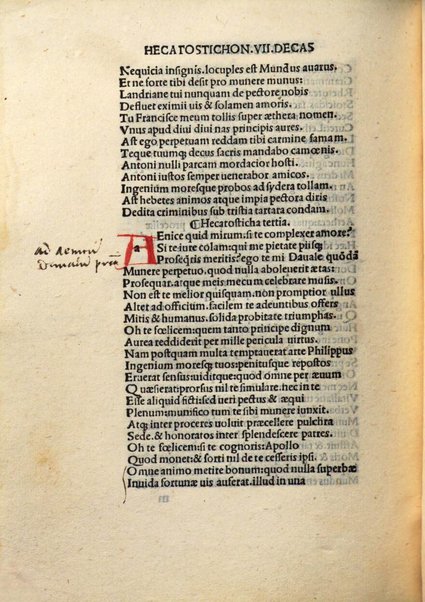 HECATOSTICHON.VII.DECAS
Nequicia insignis. locuples est Mundus auarus.
Et ne forte tibi desit pro munere munus:
Landriane tui nunquam de pectore nobis
Defluet eximii uis & solamen amoris.
Tu Francisce meum tollis super æthera nomen.
Vnus apud diui diui nas principis aures.
Ast ego perpetuam reddam tibi carmine famam.
Teque tuumq; decus sacris mandabo camœnis.
Antoni nulli parcam mordacior hosti.
Antoni iustos semper uenerabor amicos.
Ingenium moresque probos ad sydera tollam.
Ast hebetes animos atque impia pectora diris
Dedita criminibus sub tristia tartara condam.
¶ Hecatosticha tertia.
A Enice quid mirum: si te complexer amore?
Si te iure colam: qui me pietate piisq;
Prosequis meritis? ego te mi Dauale quodã
Munere perpetuo. quod nulla aboleuerit ætas:
Prosequar. atque meis mecum celebrabe musis.
Non est te melior quisquam. non promptior ullus
Alter ad officium. facilem te adeuntibus offers
Mitis & humanus. solida probitate triumphas.
Oh te fœlicem: quem tanto principe dignum
Aurea reddiderit per mille pericula uirtus.
Nam postquam multa temptauerat arte Philippus
Ingenium moresq; tuos: penitusque repostos
Eruerat sensus: uiditque: quod omne per æuum
Quæsierat: prorsus nil te simulare. nec in te
Esse aliquid fictI: sed ueri pectus & æqui
Plenum: munifico tum te sibi munere iunxit.
Atq; inter proceres uoluit præcellere pulchra
Sede. & honoratos inter splendescere patres.
Oh te fœlicem: si te cognoris: Apollo
Quod monet: & forti nil de te cesseris ipsi.
Omne animo metite bonum: quod nulla superbæ
Inuida fortunæ uis auferat. illud in una